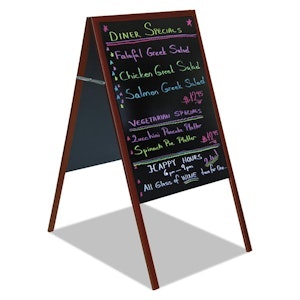 DINER SPECIALS
Falaful Greek Salad
Chicken Greek Salad
Salmon Greek Salad
$12.95
VEGETARIAN SPECIALS
Zucchini Pancake Platter
Spinach Pie Platter
$10.95
HAPPY HOURS
6pm - 9pm
All Glass of WINE two for One